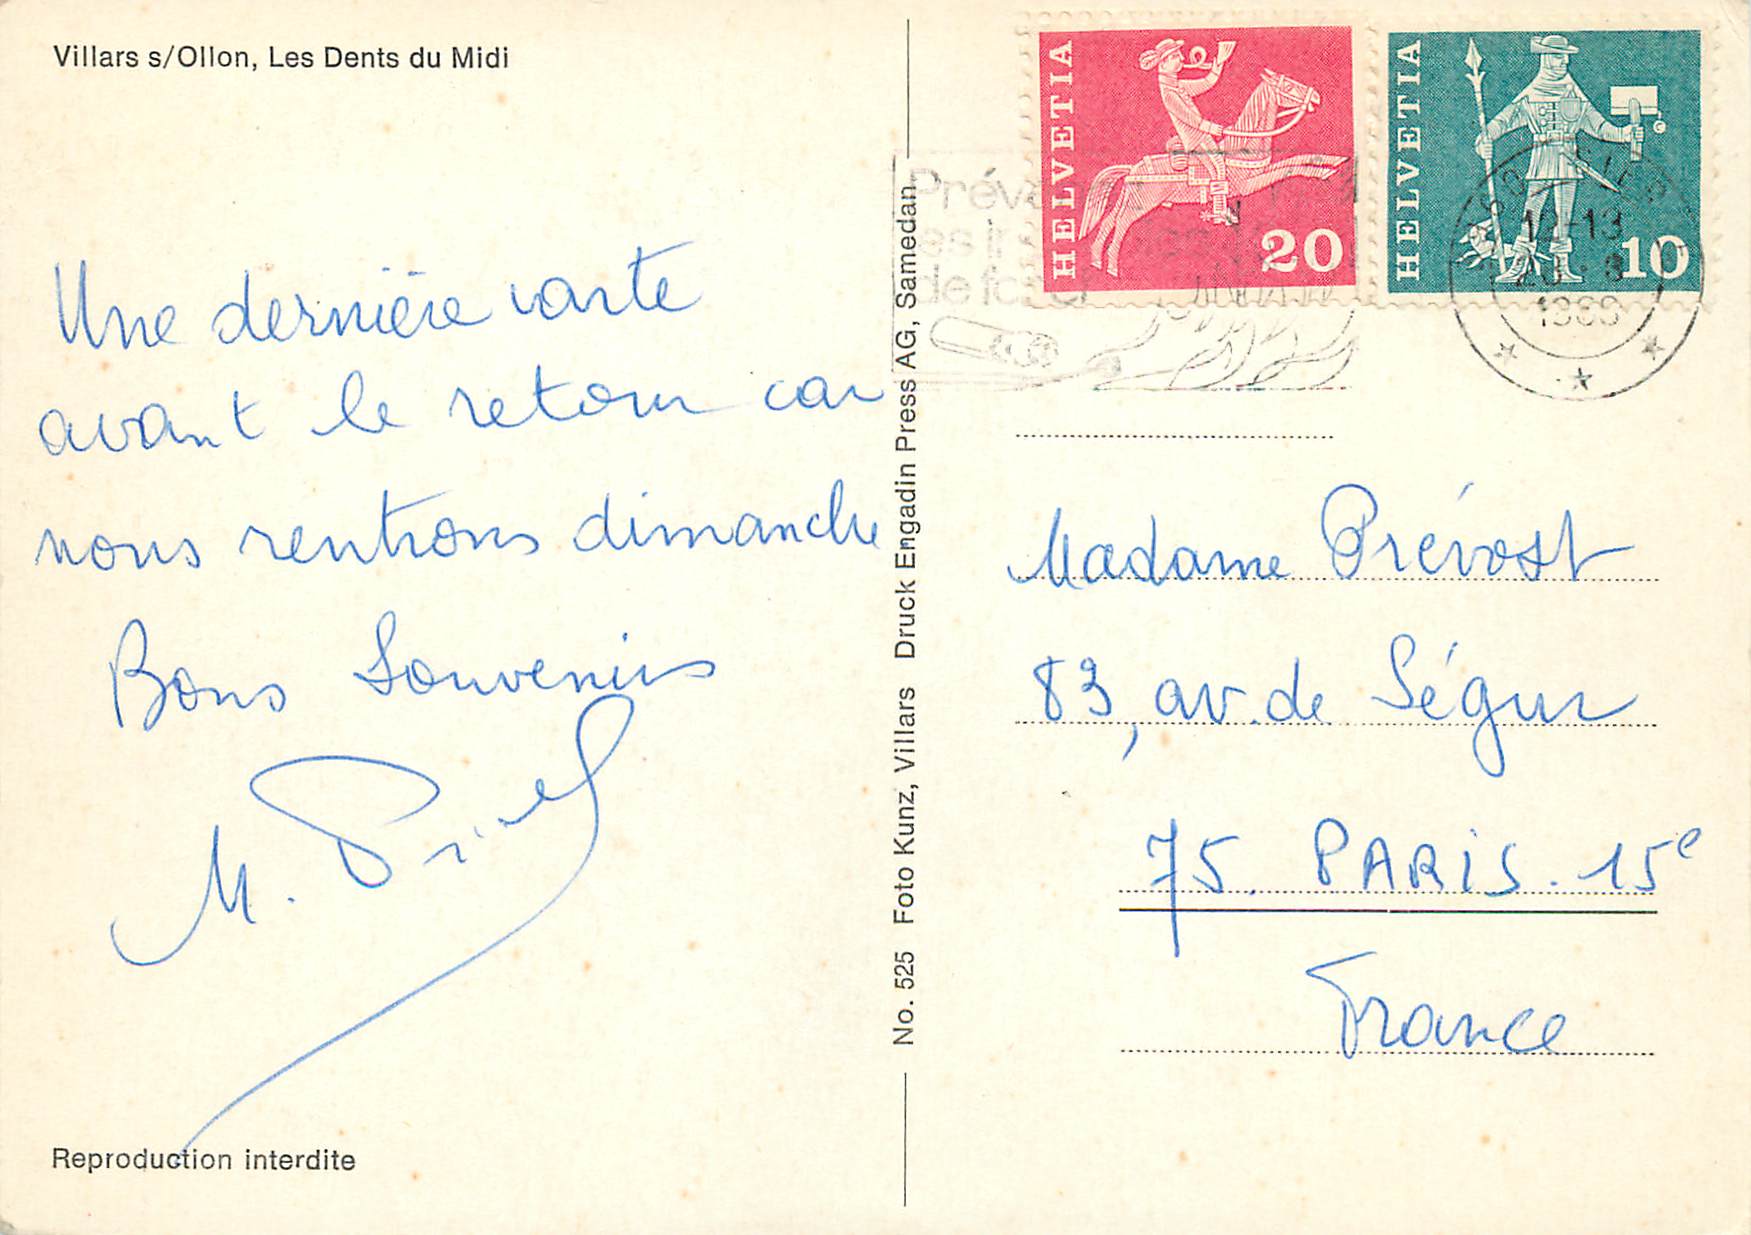 Villars s/Ollon, Les Dents du Midi
Une dernière carte
avant le retour car
nous rentrons dimanche
Bons Souvenirs
Reproduction interdite
No. 525 Foto Kunz, Villars Druck Engadin Press AG, Samedan
HELVETIA
20
HELVETIA
10
12-13
1969
Madame Prévost
83, av. de Ségur
75. PARIS. 15e
France